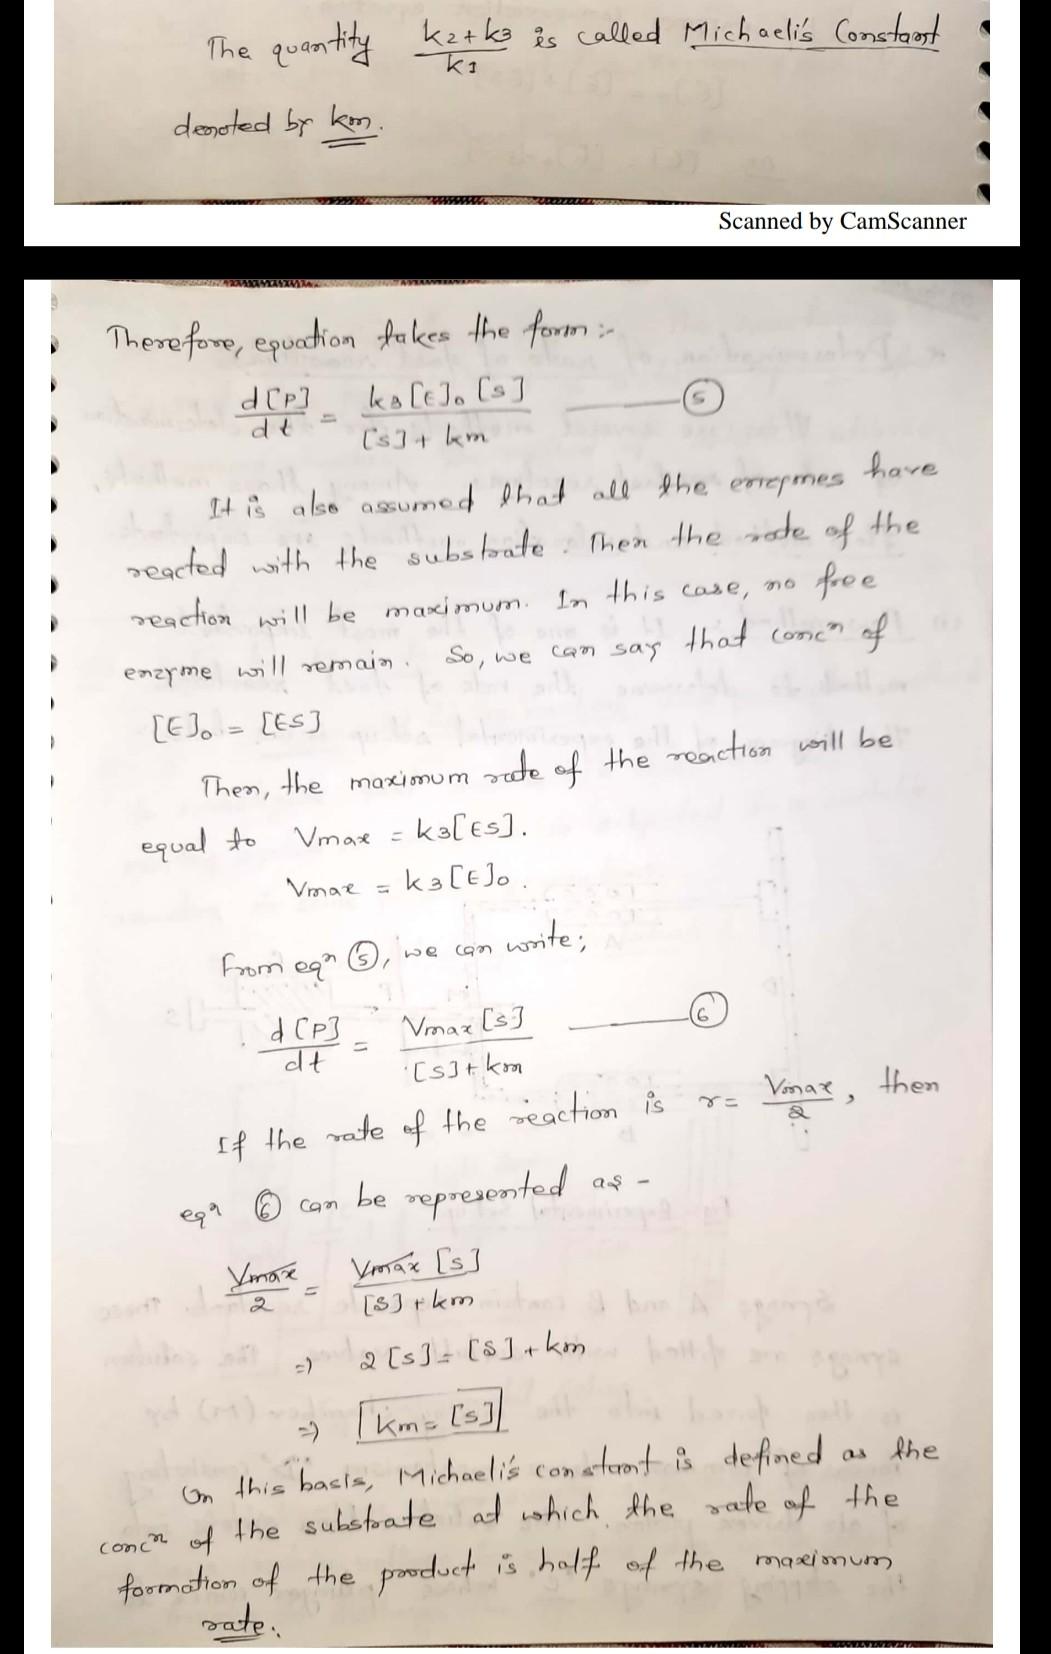 The quantity k2+k3/k1 is called Michaeli's Constant
denoted by km.
Scanned by CamScanner
Therefore, equation takes the form :-
d[P]/dt = k3[E]₀[S]/[S]+km ——— ⑤
It is also assumed that all the enzymes have
reacted with the substrate. Then the rate of the
reaction will be maximum. In this case, no free
enzyme will remain. So, we can say that concⁿ of
[E]₀ = [ES]
Then, the maximum rate of the reaction will be
equal to Vmax = k3[ES].
Vmax = k3[E]₀.
From eqⁿ ⑤, we can write;
d[P]/dt = Vmax[S]/[S]+km ——— ⑥
If the rate of the reaction is r = Vmax/2, then
eqⁿ ⑥ can be represented as -
Vmax/2 = Vmax[S]/[S]+km
=) 2[S] = [S]+km
=) km = [S]
On this basis, Michaeli's constant is defined as the
concⁿ of the substrate at which the rate of the
formation of the product is half of the maximum
rate.